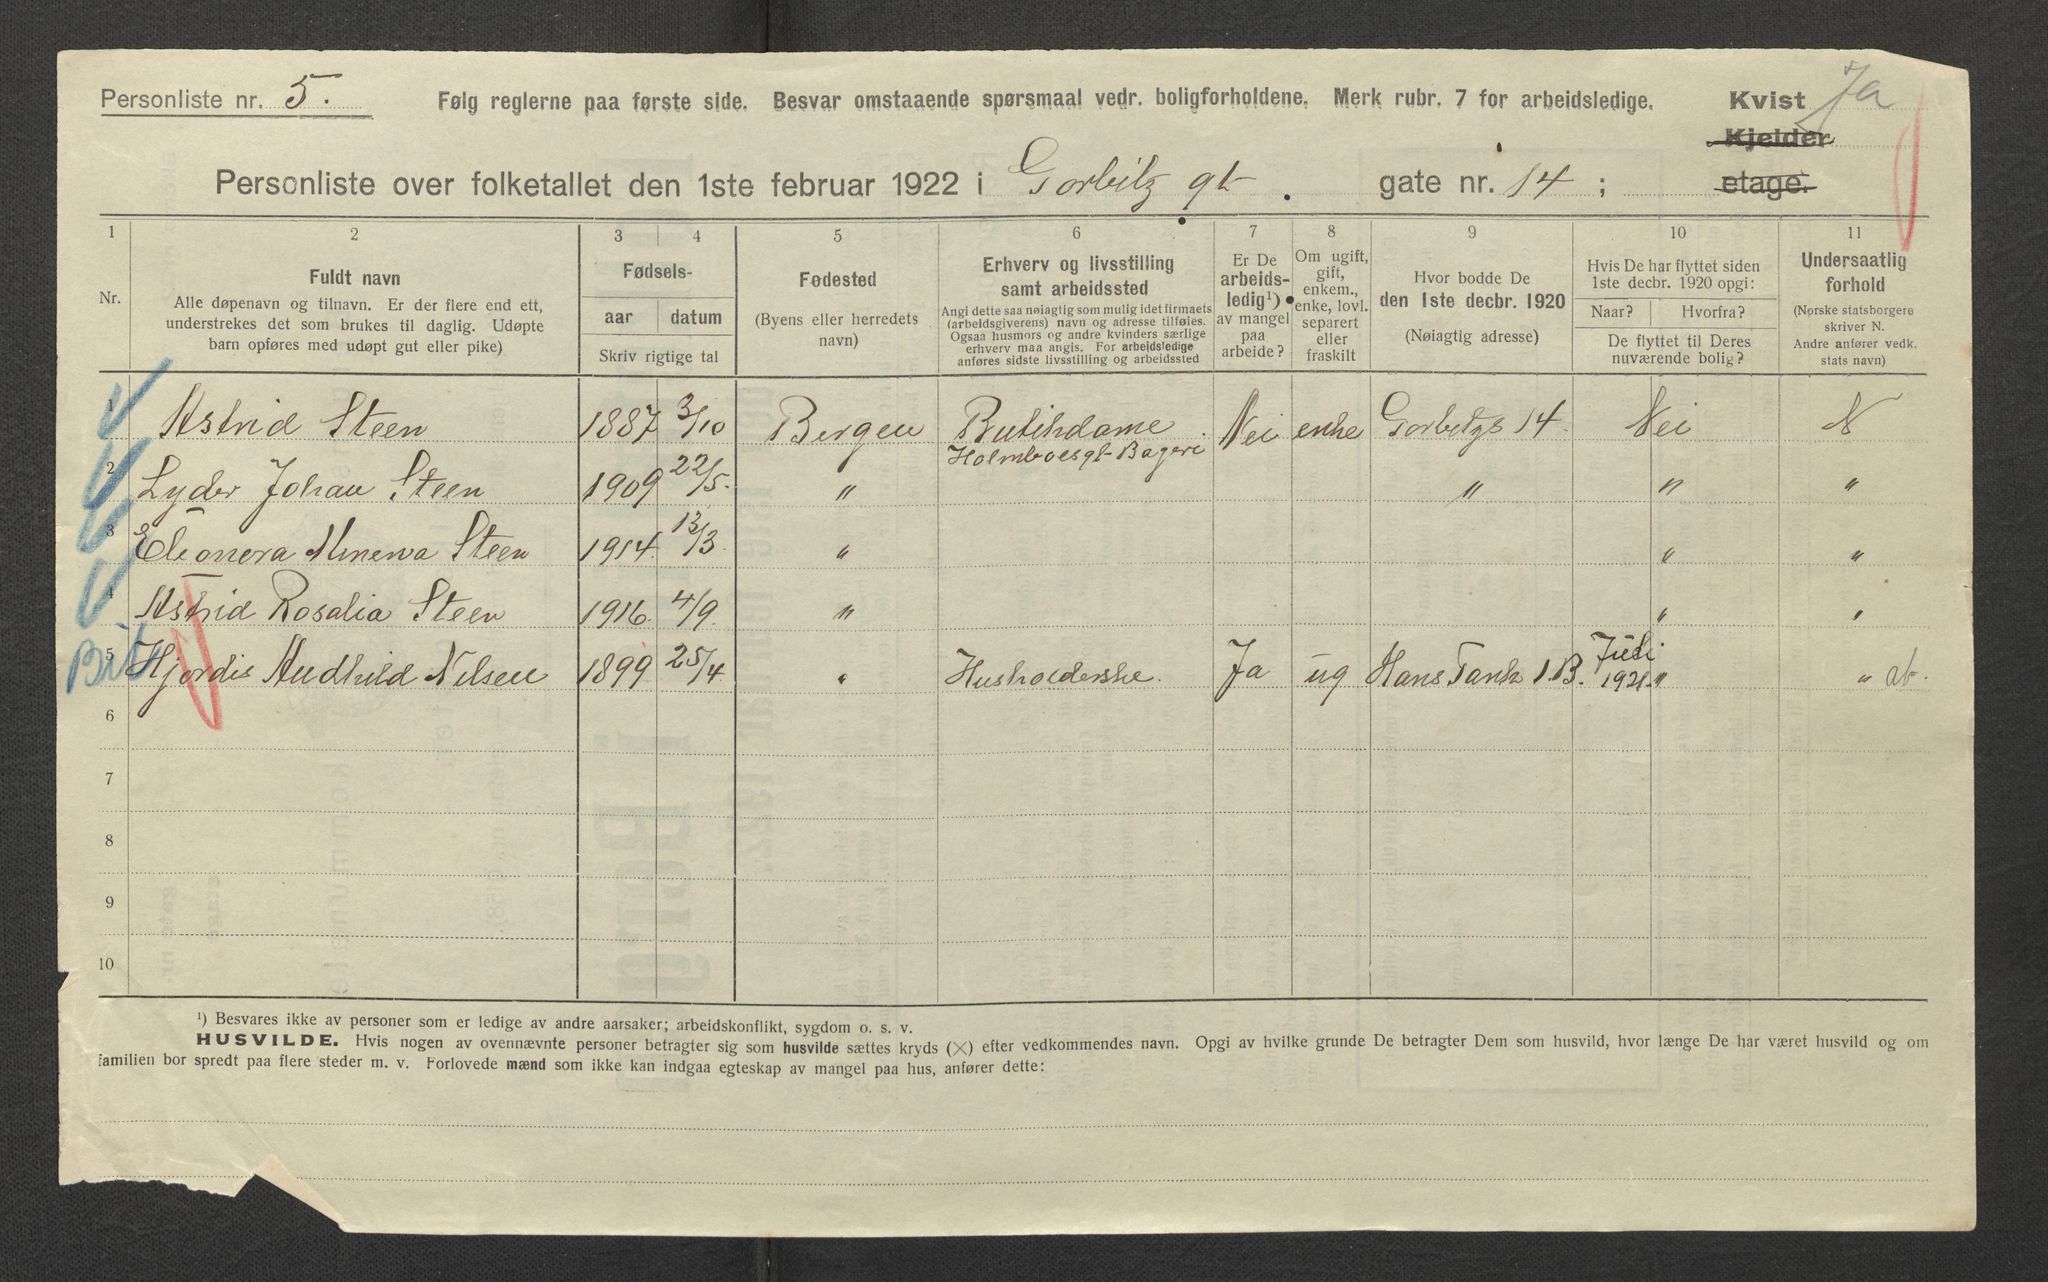 Personliste nr. 5.
Følg reglerne paa første side. Besvar omstaaende spørsmaal vedr. boligforholdene. Merk rubr. 7 for arbeidsledige.
Kvist Ja
Kjelder
etage.
Personliste over folketallet den 1ste februar 1922 i Gorbitz gt. gate nr. 14 ;
1 2 3 4 5 6 7 8 9 10 11
Nr.
Fuldt navn
Alle døpenavn og tilnavn. Er der flere end ett,
understrekes det som brukes til daglig. Udøpte
barn opføres med udøpt gut eller pike)
Fødsels-
aar datum
Skriv rigtige tal
Fødested
(Byens eller herredets
navn)
Erhverv og livsstilling
samt arbeidssted
Angi dette saa nøiagtig som mulig idet firmaets
(arbeidsgiverens) navn og adresse tilføies.
Ogsaa husmors og andre kvinders særlige
erhverv maa angis. For arbeidsledige
anføres sidste livsstilling og arbeidssted
Er De
arbeids-
ledig¹)
av mangel
paa
arbeide?
Om ugift,
gift,
enkem.,
enke, lovl.
separert
eller
fraskilt
Hvor bodde De
den 1ste decbr. 1920
(Nøiagtig adresse)
Hvis De har flyttet siden
1ste decbr. 1920 opgi:
Naar? Hvorfra?
De flyttet til Deres
nuværende bolig?
Undersaatlig
forhold
(Norske statsborgere
skriver N.
Andre anfører vedk.
stats navn)
1 Astrid Steen 1887 3/10 Bergen Butikdame Nei enke Gorbitzgs 14. Nei N
Holmboesgt Bageri
2 Lyder Johan Steen 1909 22/5. " " " "
3 Eleonora Minerva Steen 1914 13/3 " " "
4 Astrid Rosalia Steen 1916 4/9 " " "
5 Hjordis Audhild Nilsen 1899 25/4 " Husholderske. Ja ug Hans Tanks 1.B. Juli 1921. " " ab.
6
7
8
9
10
¹) Besvares ikke av personer som er ledige av andre aarsaker; arbeidskonflikt, sygdom o. s. v.
HUSVILDE. Hvis nogen av ovennævnte personer betragter sig som husvilde sættes kryds (×) efter vedkommendes navn. Opgi av hvilke grunde De betragter Dem som husvild, hvor længe De har været husvild og om
familien bor spredt paa flere steder m. v. Forlovede mænd som ikke kan indgaa egteskap av mangel paa hus, anfører dette: